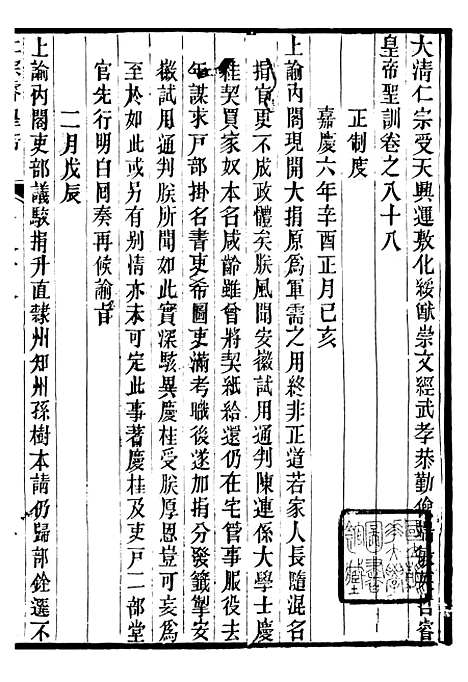 大清仁宗受天興運敷化綏猷崇文經武孝恭勤儉端敏英哲睿
皇帝聖訓卷之八十八
正制度
嘉慶六年辛酉正月己亥
上諭內閣現開大捐原爲軍需之用終非正道若家人長隨混名
捐官更不成政體矣朕風聞安徽試用通判陳連係大學士慶
桂契買家奴本名咸齡雖曾將契紙給還仍在宅管事服役去
年謀求戸部掛名書吏希圖吏滿考職後遂加捐分發籤掣安
徽試用通判朕所聞如此實深駭異慶桂受朕厚恩豈可亥爲
至於如此或另有别情亦未可定此事著慶桂及吏戸二部堂
官先行明白回奏再候諭旨
二月戊辰
上諭內閣吏部議駁捐升直隸州知州孫樹本請仍歸部銓選不